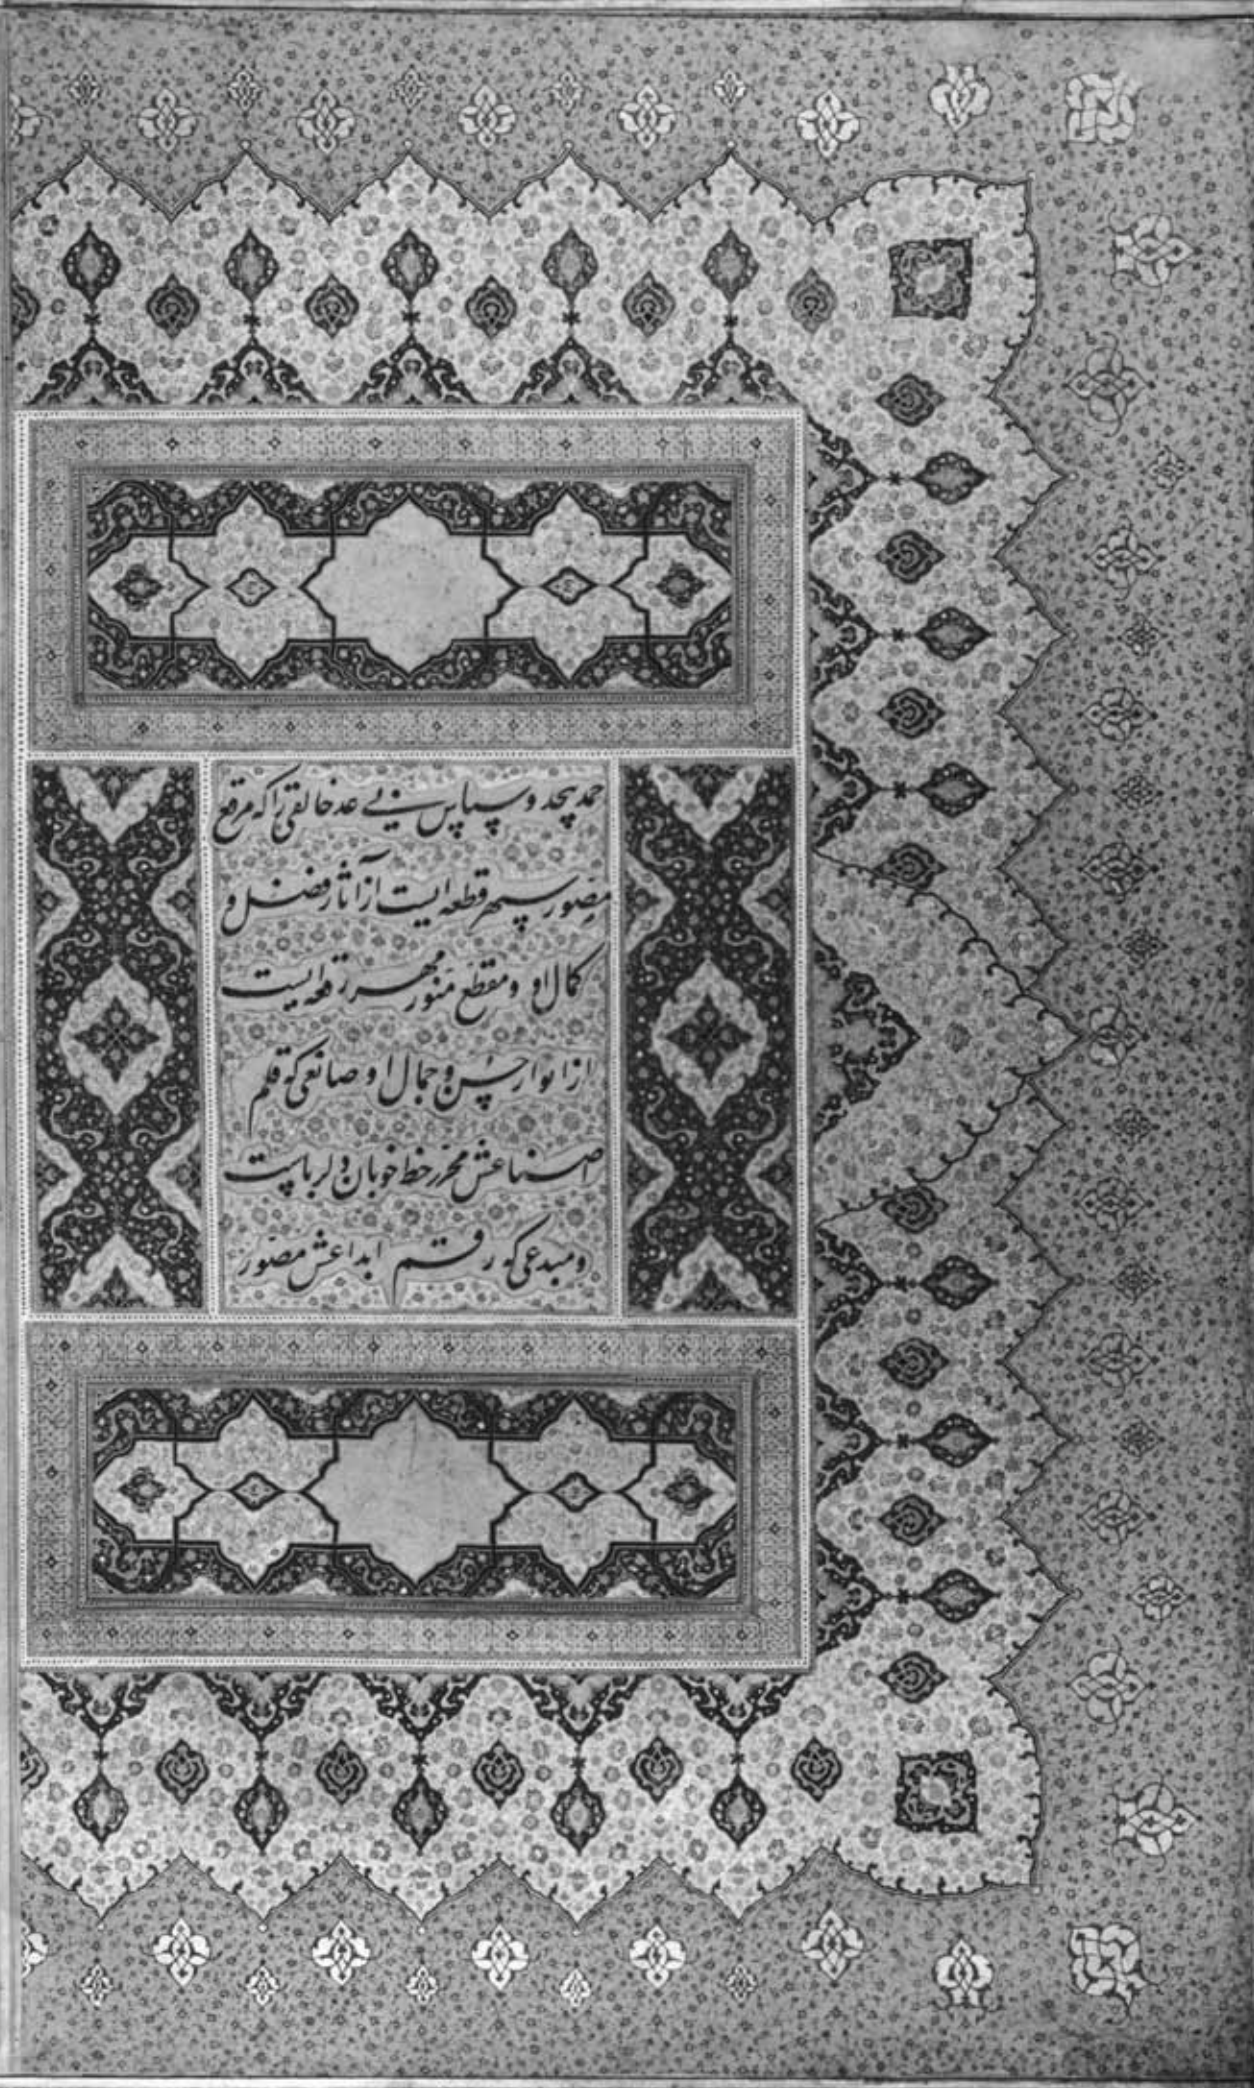 حمد بیحد و سپاس بی عد خالقی را که مرقع
مصور سپهر قطعه ایست از آثار فضل و
کمال او و مقطع منور مهر رقعه ایست
از انوار حسن و جمال او صانعی که قلم
اصناعش محرر خط خوبان دلرباست
و مبدعی که رقم ابداعش مصور